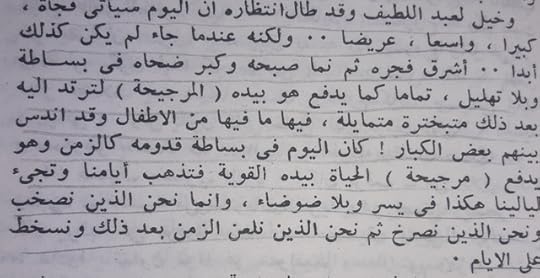 وخيل لعبد اللطيف وقد طال انتظاره ان اليوم سيأتى فجأة ،
كبيرا ، واسعا ، عريضا ٠٠ ولكنه عندما جاء لم يكن كذلك
أبدا ٠٠ أشرق فجره ثم نما صبحه وكبر ضحاه فى بساطة
وبلا تهليل ، تماما كما يدفع هو بيده ( المرجيحة ) لترتد اليه
بعد ذلك متبخترة متمايلة ، فيها ما فيها من الاطفال وقد اندس
بينهم بعض الكبار ! كان اليوم فى بساطة قدومه كالزمن وهو
يدفع ( مرجيحة ) الحياة بيده القوية فتذهب أيامنا وتجىء
ليالينا هكذا فى يسر وبلا ضوضاء ، وانما نحن الذين نصخب
ونحن الذين نصرخ ثم نحن الذين نلعن الزمن بعد ذلك ونسخط
على الايام ٠